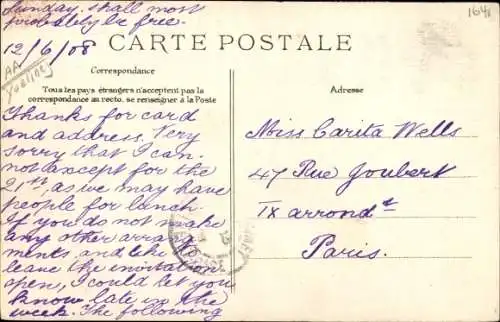 Sunday. shall most
probably be free.
12/6/08
AA
Yvelines
1641
CARTE POSTALE
Correspondance
Tous les pays étrangers n'acceptent pas la
correspondance au recto, se renseigner à la Poste
Thanks for card
and address. Very
sorry that I can-
not axcept for the
21st, as we may have
people for lunch.
If you do not make
any other arrange-
ments, and like to
leave the invitation
open, I could let you
know late in the
week. The following
Adresse
Miss Carita Wells
47 Rue Joubert
IX arrondt
Paris.